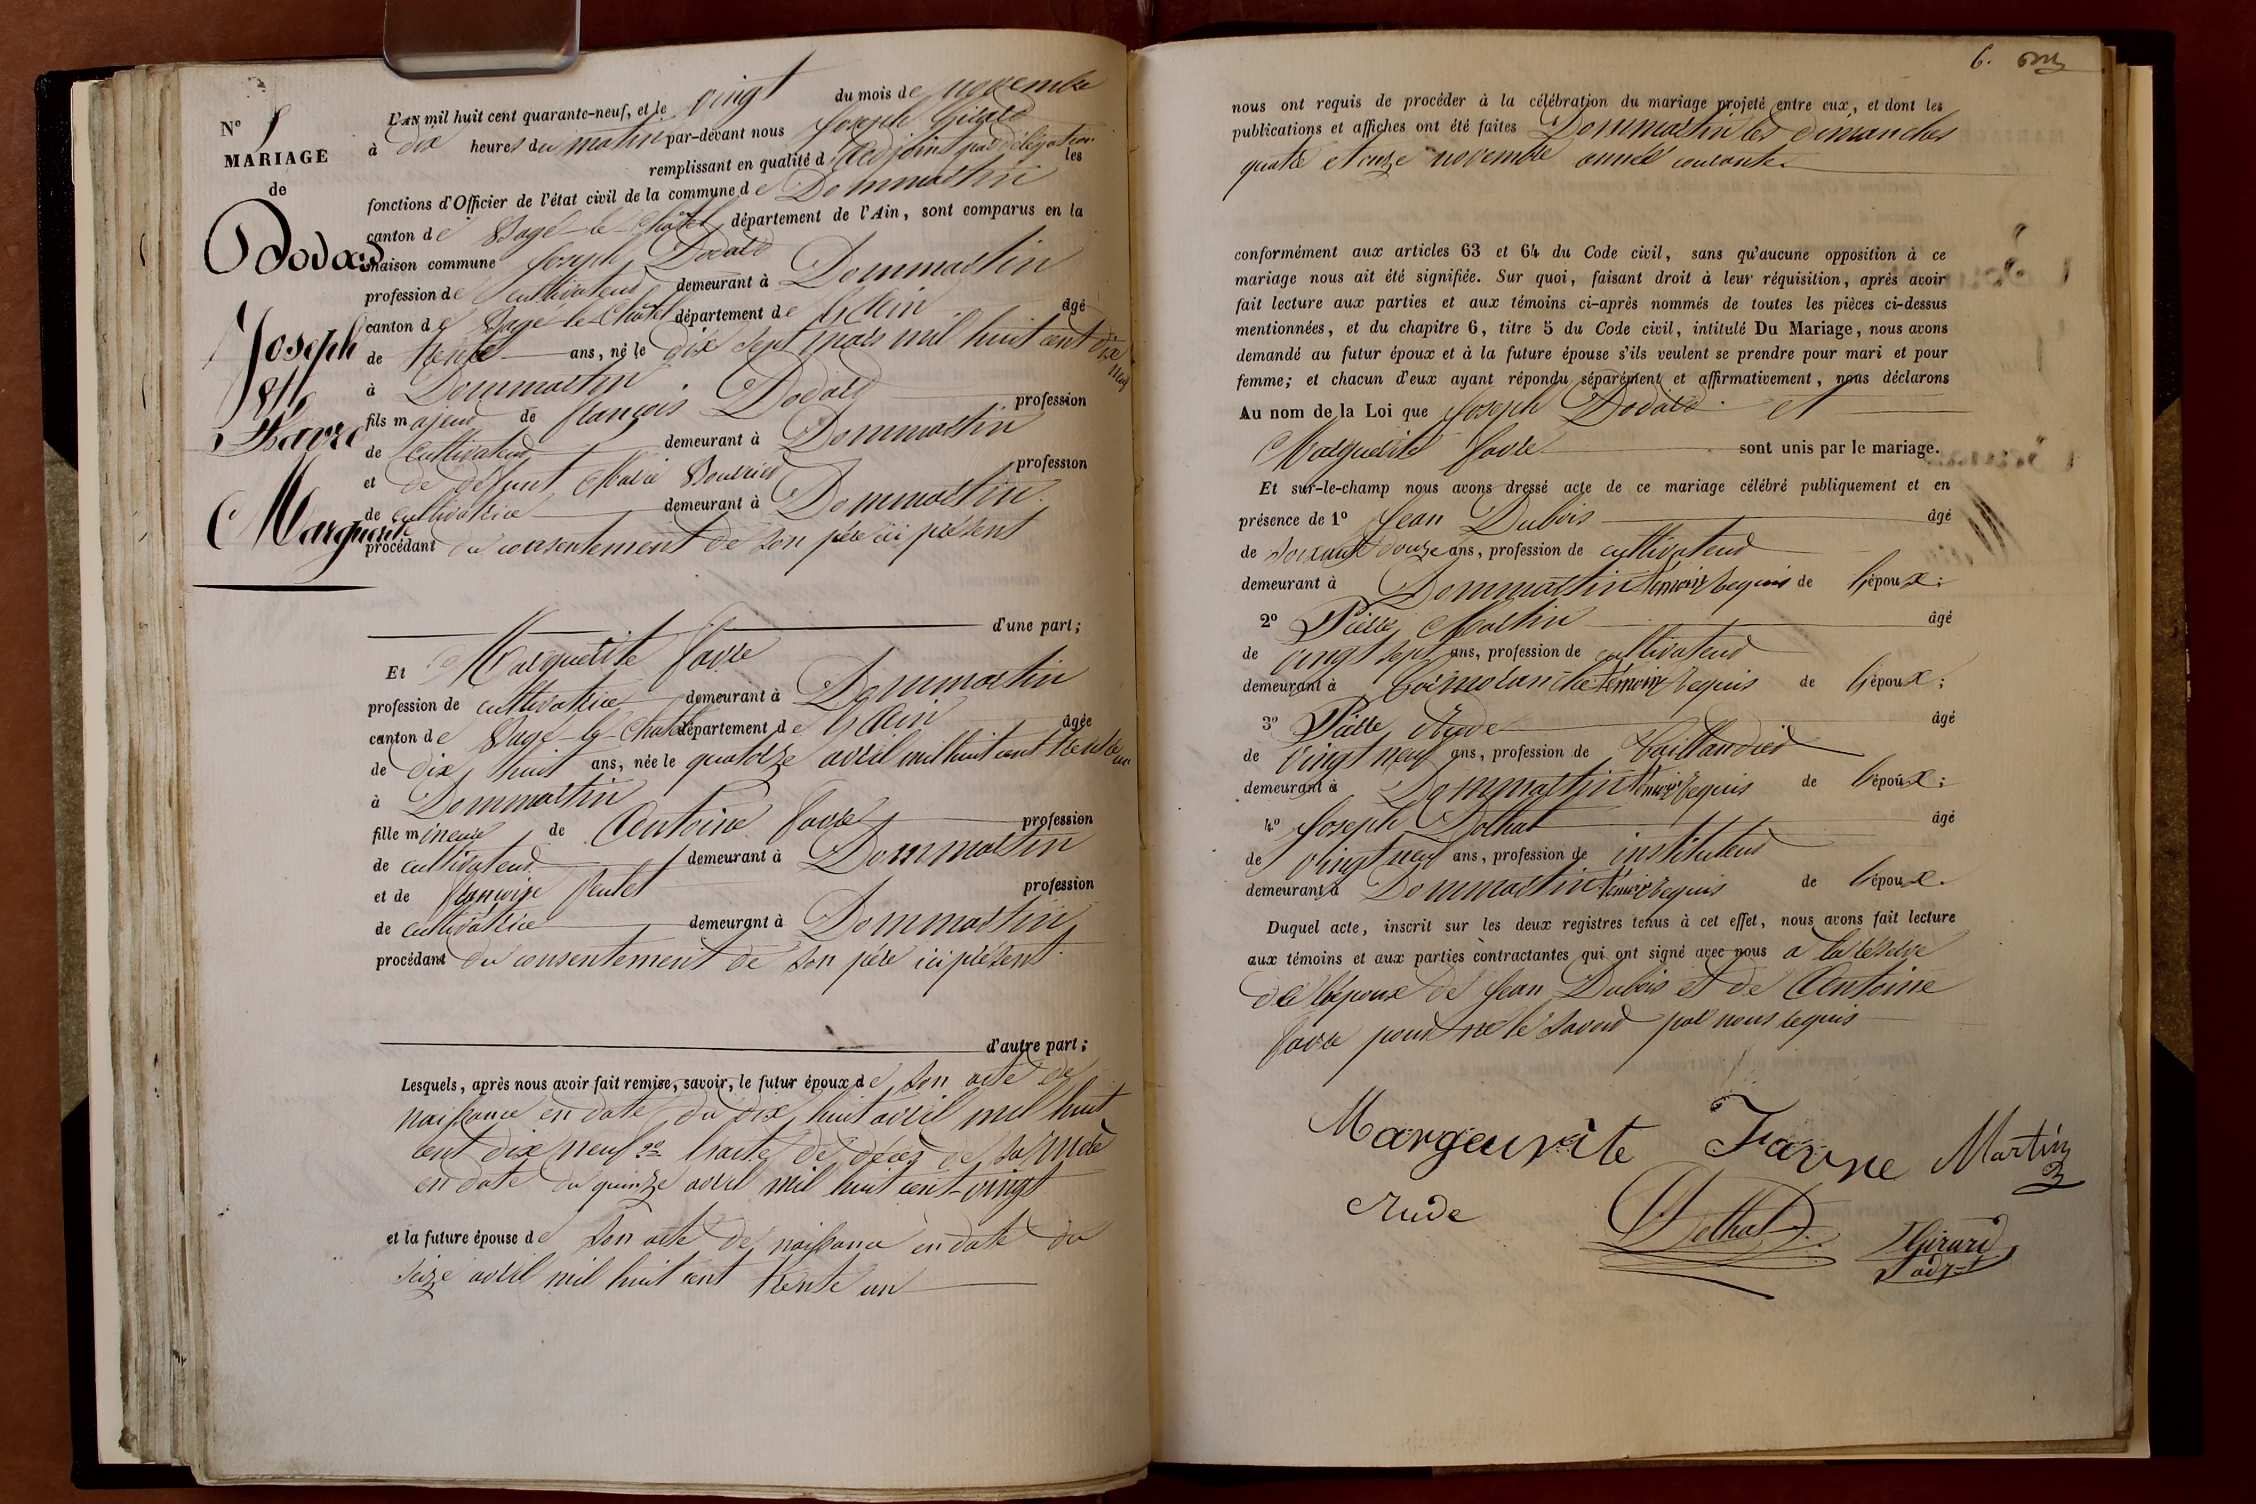 N° 8
MARIAGE
de
Dodard
Joseph
et
Favre
Marguerite
L'AN mil huit cent quarante-neuf, et le vingt du mois de novembre
à dix heures du matin par-devant nous Joseph Girard
remplissant en qualité d'adjoint par délégation les
fonctions d'Officier de l'état civil de la commune de Dommartin
canton de Bagé-le-Châtel département de l'Ain, sont comparus en la
maison commune Joseph Dodard
profession de cultivateur demeurant à Dommartin
canton de Bagé-le-Châtel département de l'Ain âgé
de trente ans, né le dix sept mars mil huit cent dix neuf
à Dommartin
fils majeur de françois Dodard profession
de cultivateur demeurant à Dommartin
et de défunt Marie profession
de cultivatrice demeurant à Dommartin.
procédant du consentement de son père ici présent
d'une part;
Et Marguerite favre
profession de cultivatrice demeurant à Dommartin
canton de Bagé-le-Châtel département de l'Ain âgée
de dix huit ans, née le quatorze avril mil huit cent trente un
à Dommartin
fille mineure de Antoine favre profession
de cultivateur demeurant à Dommartin
et de françoise profession
de cultivatrice demeurant à Dommartin
procédant du consentement de son père ici présent.
d'autre part;
Lesquels, après nous avoir fait remise, savoir, le futur époux de son acte de
naissance en date du dix huit avril mil huit
cent dix neuf 2° l'acte de décès de sa mère
en date du quinze avril mil huit cent vingt
et la future épouse de son acte de naissance en date du
seize avril mil huit cent trente un
6.
nous ont requis de procéder à la célébration du mariage projeté entre eux, et dont les
publications et affiches ont été faites Dommartin les dimanches
quatre et onze novembre année courante.
conformément aux articles 63 et 64 du Code civil, sans qu'aucune opposition à ce
mariage nous ait été signifiée. Sur quoi, faisant droit à leur réquisition, après avoir
fait lecture aux parties et aux témoins ci-après nommés de toutes les pièces ci-dessus
mentionnées, et du chapitre 6, titre 5 du Code civil, intitulé Du Mariage, nous avons
demandé au futur époux et à la future épouse s'ils veulent se prendre pour mari et pour
femme; et chacun d'eux ayant répondu séparément et affirmativement, nous déclarons
Au nom de la Loi que Joseph Dodard et
Marguerite favre sont unis par le mariage.
Et sur-le-champ nous avons dressé acte de ce mariage célébré publiquement et en
présence de 1° Jean Dubois âgé
de soixante douze ans, profession de cultivateur
demeurant à Dommartin témoin requis de l'époux;
2° Pierre Martin âgé
de vingt sept ans, profession de cultivateur
demeurant à témoin requis de l'époux;
3° Pierre Rude âgé
de vingt neuf ans, profession de taillandier
demeurant à Dommartin témoin requis de l'époux;
4° Joseph Dothal âgé
de vingt neuf ans, profession de instituteur
demeurant à Dommartin témoin requis de l'époux.
Duquel acte, inscrit sur les deux registres tenus à cet effet, nous avons fait lecture
aux témoins et aux parties contractantes qui ont signé avec nous a la réserve
de l'époux de Jean Dubois et de Antoine
favre pour ne le savoir par nous requis
Margeurite Favre Martin
Rude Dothal J Girard
adjt